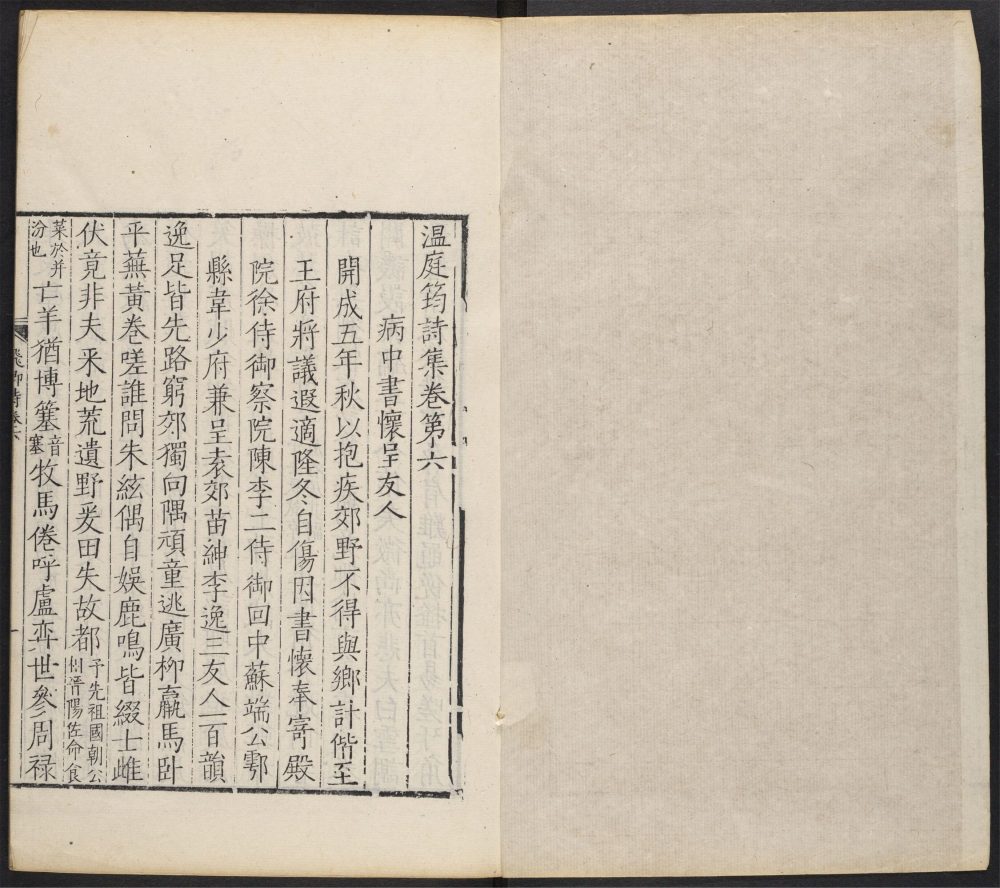 温庭筠詩集卷第六
病中書懷呈友人
開成五年秋以抱疾郊野不得與鄉計偕至
王府將議遐適隆冬自傷因書懷奉寄殿
院徐侍御察院陳李二侍御回中蘇端公鄠
縣韋少府兼呈袁郊苗紳李逸三友人一百韻
逸足皆先路窮郊獨向隅頑童逃廣柳羸馬卧
平蕪黃卷嗟誰問朱絃偶自娛鹿鳴皆綴士雌
伏竟非夫采地荒遺野爰田失故都予先祖國朝公
相晉陽佐命食
菜於并
汾也亡羊猶博簺音
塞牧馬倦呼盧弈世參周祿